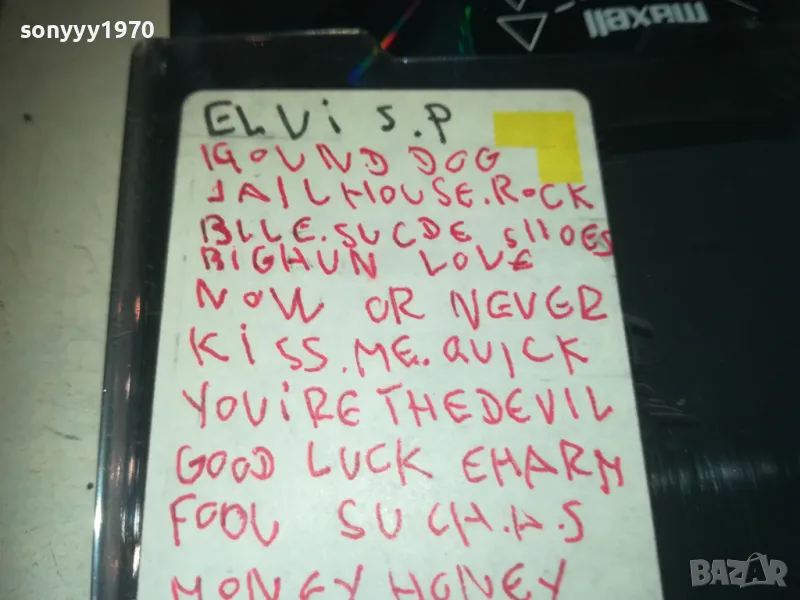 sonyyy1970
maxell
ELVi S.P
HOUND DOG
JAILHOUSE.ROCK
BLLE.SUCDE SHOES
BIGHUN LOVE
NOW OR NEVER
KiSS.ME.QUICK
YOUiRE THEDEVIL
GOOD LUCK EHARM
FOOL SUCH.A.S
MONEY HONEY
BAZAR